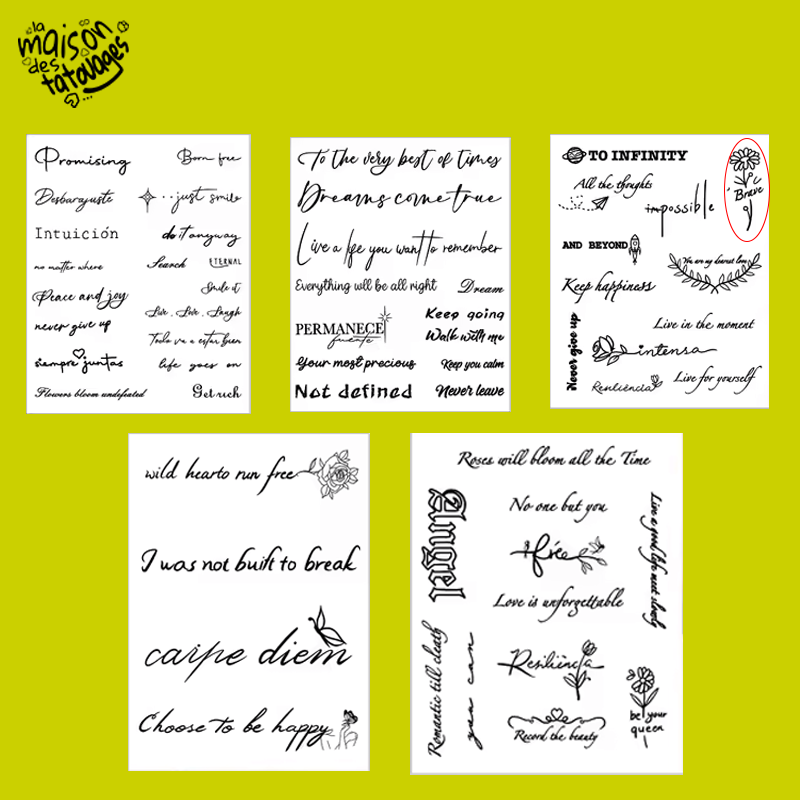 la
maison
des
tatouages
Promising
Born free
Desbarajuste
just smile
Intuición
do it anyway
no matter where
Search
ETERNAL
Peace and joy
Smile it
Live, Love, Laugh
never give up
Todo va a estar bien
siempre juntas
life goes on
Flowers bloom undefeated
Get rich
To the very best of times
Dreams come true
Live a life you want to remember
Everything will be all right
Dream
PERMANECE
fuerte
Keep going
Walk with me
Your most precious
Keep you calm
Not defined
Never leave
TO INFINITY
All the thoughts
impossible
Brave
AND BEYOND
You are my dearest love
Keep happiness
Never give up
Live in the moment
intensa
Resiliência
Live for yourself
wild hearto run free
I was not built to break
carpe diem
Choose to be happy
Roses will bloom all the Time
Angel
No one but you
Live a good life meet slowly
free
Love is unforgettable
Romantic till death
you can
Resiliência
be your
queen
Record the beauty